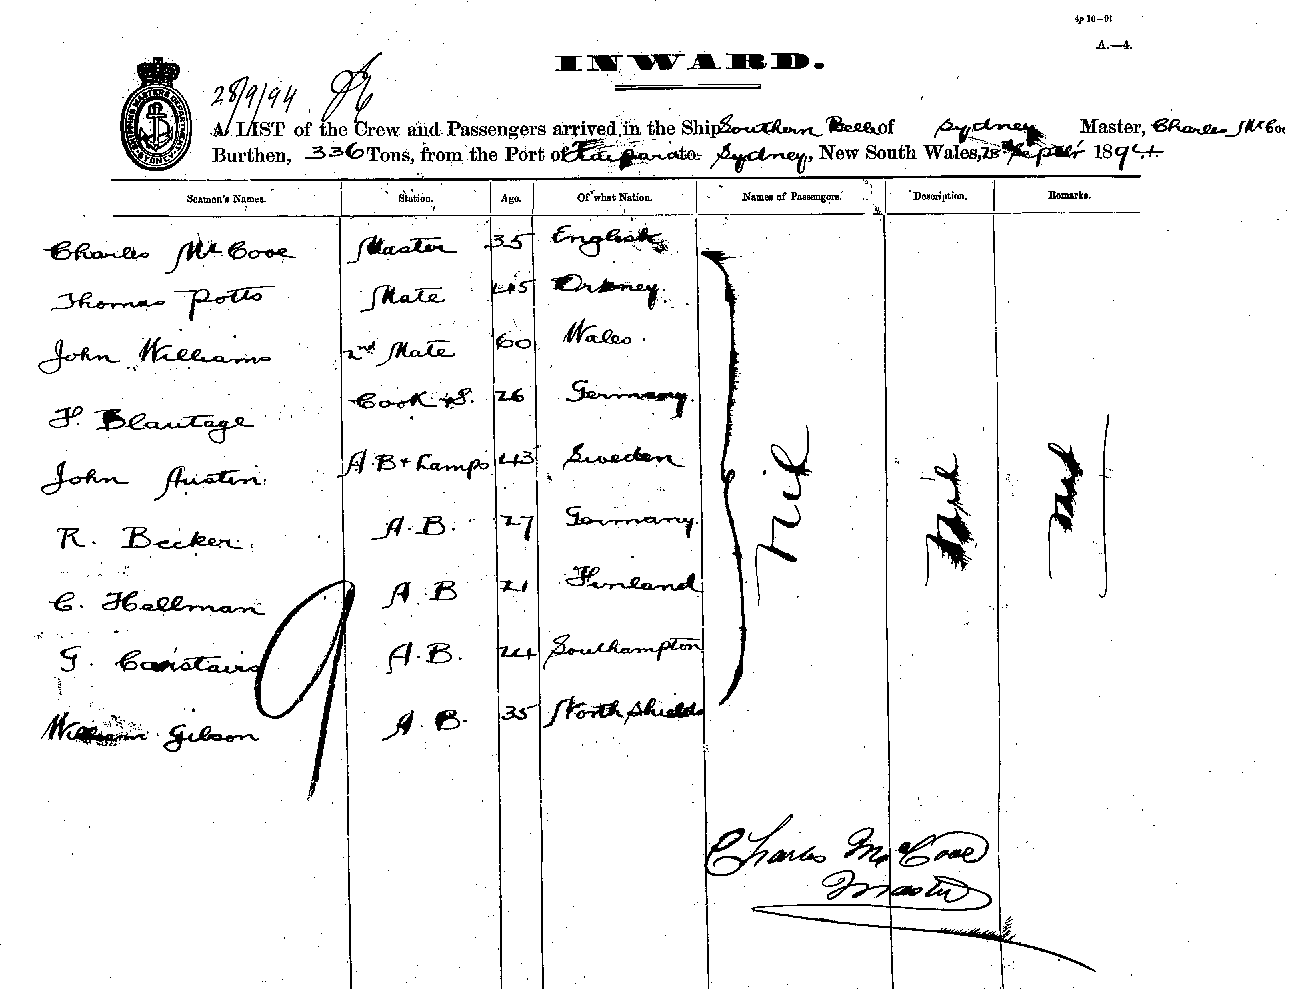 4p 10—91
A.—4.
INWARD.
28/9/94
A LIST of the Crew and Passengers arrived in the Ship Southern Belle of Sydney Master, Charles McCoe
Burthen, 336 Tons, from the Port of Kaipara to Sydney, New South Wales, 28th Septr 1894
Seamen's Names. Station. Age. Of what Nation. Names of Passengers. Description. Remarks.
Charles McCooe Master 35 English
Thomas Potts Mate 45 Orkney.
John Williams 2nd Mate 60 Wales.
F. Blautage Cook & S. 26 Germany.
John Austin A.B + Lamps 43 Sweden
R. Becker. A.B. 27 Germany.
C. Hellman A.B 21 Finland
G. Canstairs A.B. 24 Southampton
William Gibson A.B. 35 North Shields
Nil Nil Nil
9
Charles McCooe
Master